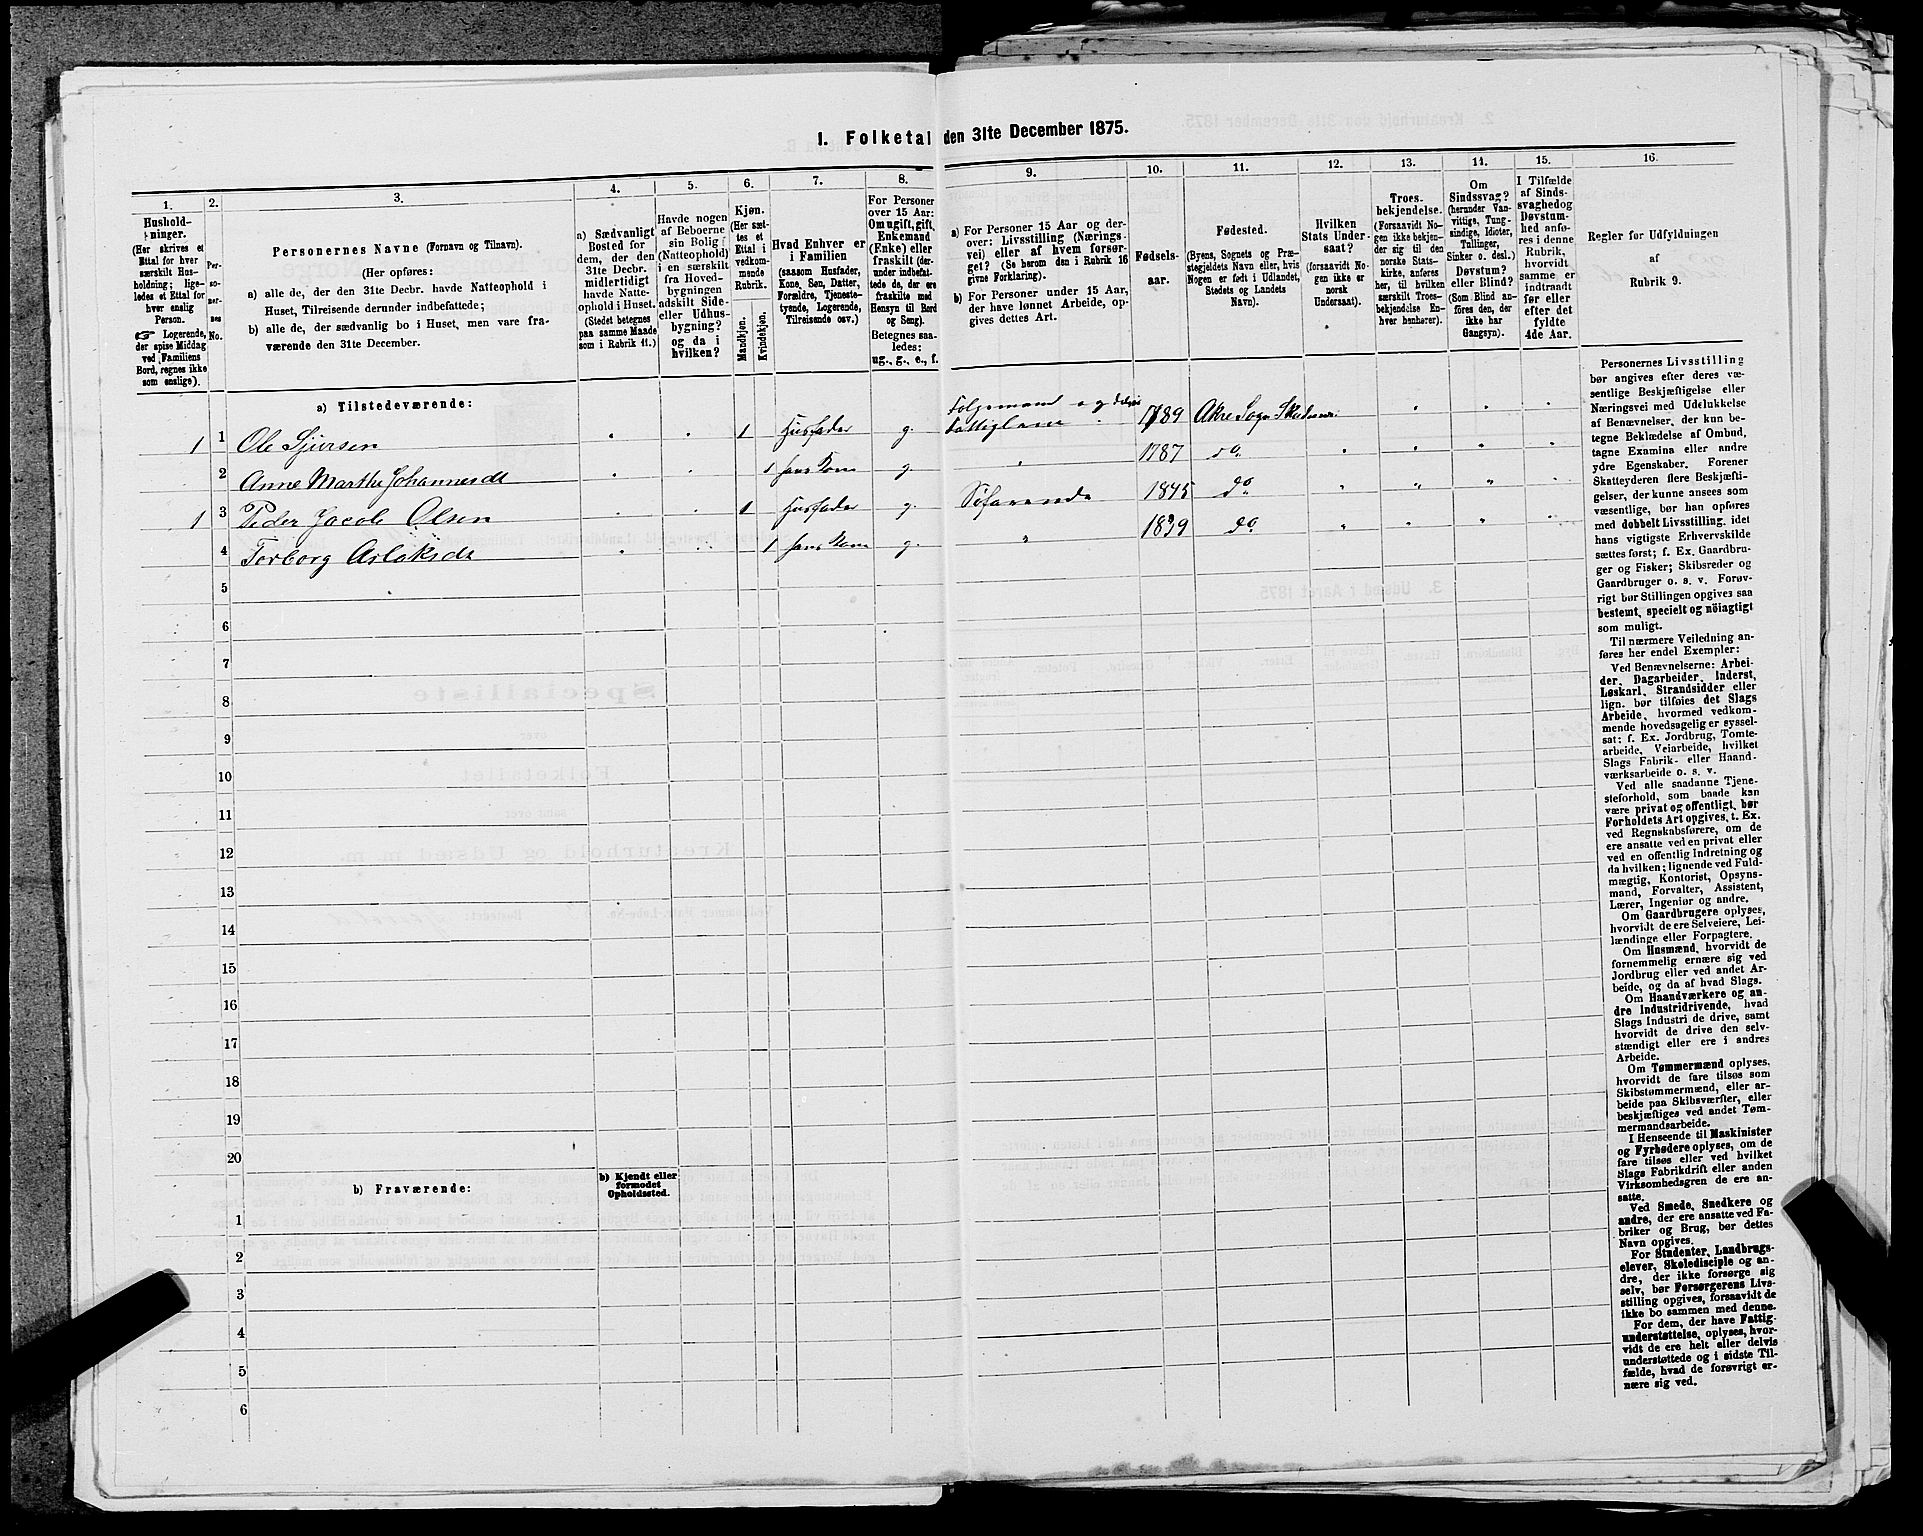 1. Folketal den 31te December 1875.
1. 2. 3. 4. 5. 6. 7. 8. 9. 10. 11. 12. 13. 14. 15. 16.
Hushold-
ninger.
(Her skrives et
Ettal for hver
særskilt Hus-
holdning; lige-
ledes et Ettal for
hver enslig
Person.
☞ Logerende,
der spise Middag
ved Familiens
Bord, regnes ikke
som enslige).
Per-
so-
ner-
nes
No.
Personernes Navne (Fornavn og Tilnavn).
(Her opføres:
a) alle de, der den 31te Decbr. havde Natteophold i
Huset, Tilreisende derunder indbefattede;
b) alle de, der sædvanlig bo i Huset, men vare fra-
værende den 31te December.
a) Sædvanligt
Bosted for
dem, der den
31te Decbr.
midlertidigt
havde Natte-
ophold i Huset.
(Stedet betegnes
paa samme Maade
som i Rubrik 11.)
Havde nogen
af Beboerne
sin Bolig
(Natteophold)
i en særskilt
fra Hoved-
bygningen
adskilt Side-
eller Udhus-
bygning?
og da i
hvilken?
Kjøn.
(Her sæt-
tes et
Ettal i
vedkom-
mende
Rubrik.
Mandkjøn.
Kvindekjøn.
Hvad Enhver er
i Familien
(saasom Husfader,
Kone, Søn, Datter,
Forældre, Tjeneste-
tyende, Logerende,
Tilreisende osv.)
For Personer
over 15 Aar:
Om ugift, gift,
Enkemand
(Enke) eller
fraskilt (der-
under indbefat-
tede de, der ere
fraskilte med
Hensyn til Bord
og Seng).
Betegnes saa-
ledes:
ug., g., e., f.
a) For Personer 15 Aar og der-
over: Livsstilling (Nærings-
vei) eller af hvem forsør-
get? (Se herom den i Rubrik 16
givne Forklaring).
b) For Personer under 15 Aar,
der have lønnet Arbeide, op-
gives dettes Art.
Fødsels-
aar.
Fødested.
(Byens, Sognets og Præ-
stegjeldets Navn eller, hvis
Nogen er født i Udlandet,
Stedets og Landets
Navn).
Hvilken
Stats Under-
saat?
(forsaavidt No-
gen ikke er
norsk
Undersaat).
Troes-
bekjendelse.
(Forsaavidt No-
gen ikke bekjen-
der sig til den
norske Stats-
kirke, anføres
her, til hvilken
særskilt Troes-
bekjendelse En-
hver henhører).
Om
Sindssvag?
(herunder Van-
vittige, Tung-
sindige, Idioter,
Tullinger,
Sinker o. desl.)
Døvstum?
eller Blind?
(Som Blind an-
føres den, der
ikke har
Gangsyn).
I Tilfælde
af Sinds-
svaghed og
Døvstum-
hed anfø-
res i denne
Rubrik,
hvorvidt
samme er
indtraadt
før eller
efter det
fyldte
4de Aar.
Regler for Udfyldningen
af
Rubrik 9.
a) Tilstedeværende:
1 1 Ole Sjursen 1 Husfader g. 1789 Akre Sogn
2 Anne Marthe Johannesdt 1 hans Kone g. 1787 do.
1 3 Peder Jacob Olsen 1 Husfader g. Søfarende 1845 do.
4 Torborg Aslaksdt 1 hans Kone g. 1839 do.
5
6
7
8
9
10
11
12
13
14
15
16
17
18
19
20
b) Fraværende:
b) Kjendt eller
formodet
Opholdssted.
1
2
3
4
5
6
Personernes Livsstilling
bør angives efter deres væ-
sentlige Beskjæftigelse eller
Næringsvei med Udelukkelse
af Benævnelser, der kun be-
tegne Beklædelse af Ombud,
tagne Examina eller andre
ydre Egenskaber. Forener
Skatteyderen flere Beskjæfti-
gelser, der kunne ansees som
væsentlige, bør han opføres
med dobbelt Livsstilling, idet
hans vigtigste Erhvervskilde
sættes først; f. Ex. Gaardbru-
ger og Fisker; Skibsreder og
Gaardbruger o. s. v. Forøv-
rigt bør Stillingen opgives saa
bestemt, specielt og nöiagtigt
som muligt.
Til nærmere Veiledning an-
føres her endel Exempler:
Ved Benævnelserne: Arbei-
der, Dagarbeider, Inderst,
Løskarl, Strandsidder eller
lign. bør tilføies det Slags
Arbeide, hvormed vedkom-
mende hovedsagelig er syssel-
sat; f. Ex. Jordbrug, Tomte-
arbeide, Veiarbeide, hvilket
Slags Fabrik- eller Haand-
værksarbeide o. s. v.
Ved alle saadanne Tjene-
steforhold, som baade kan
være privat og offentligt, bør
Forholdets Art opgives, t. Ex.
ved Regnskabsførere, om de
ere ansatte ved en privat eller
ved en offentlig Indretning og
da hvilken; lignende ved Fuld-
mægtig, Kontorist, Opsyns-
mand, Forvalter, Assistent,
Lærer, Ingeniør og andre.
Om Gaardbrugere oplyses,
hvorvidt de ere Selveiere, Lei-
lændinge eller Forpagtere.
Om Husmænd, hvorvidt de
fornemmelig ernære sig ved
Jordbrug eller ved andet Ar-
beide, og da af hvad Slags.
Om Haandværkere og an-
dre Industridrivende, hvad
Slags Industri de drive, samt
hvorvidt de drive den selv-
stændigt eller ere i andres
Arbeide.
Om Tømmermænd oplyses,
hvorvidt de fare tilsøs som
Skibstømmermænd, eller ar-
beide paa Skibsværfter, eller
beskjæftiges ved andet Tøm-
mermandsarbeide.
I Henseende til Maskinister
og Fyrbødere oplyses, om de
fare tilsøs eller ved hvilket
Slags Fabrikdrift eller anden
Virksomhedsgren de ere an-
satte.
Ved Smede, Snedkere og
andre, der ere ansatte ved Fa-
briker og Brug, bør dettes
Navn opgives.
For Studenter, Landbrugs-
elever, Skoledisciple og an-
dre, der ikke forsørge sig
selv, bør Forsørgerens Livs-
stilling opgives, forsaavidt de
ikke bo sammen med denne.
For dem, der have Fattig-
understøttelse, oplyses, hvor-
vidt de ere helt eller delvis
understøttede og i sidste Til-
fælde, hvad de forøvrigt er-
nære sig ved.